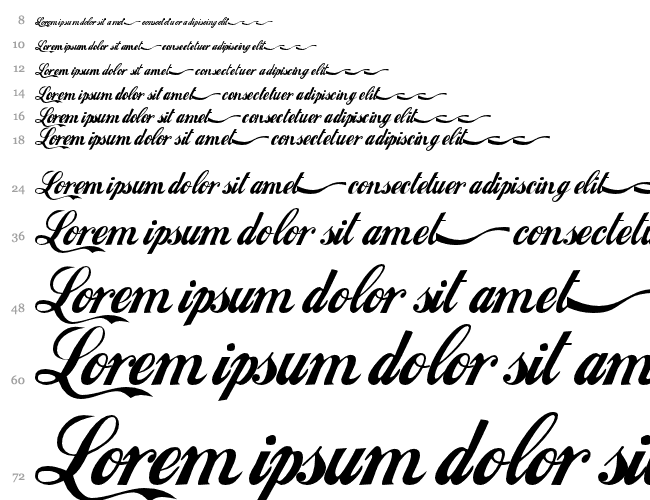 8 Lorem ipsum dolor sit amet consectetuer adipiscing elit
10 Lorem ipsum dolor sit amet consectetuer adipiscing elit
12 Lorem ipsum dolor sit amet consectetuer adipiscing elit
14 Lorem ipsum dolor sit amet consectetuer adipiscing elit
16 Lorem ipsum dolor sit amet consectetuer adipiscing elit
18 Lorem ipsum dolor sit amet consectetuer adipiscing elit
24 Lorem ipsum dolor sit amet consectetuer adipiscing elit
36 Lorem ipsum dolor sit amet consectetu
48 Lorem ipsum dolor sit amet
60 Lorem ipsum dolor sit am
72 Lorem ipsum dolor si